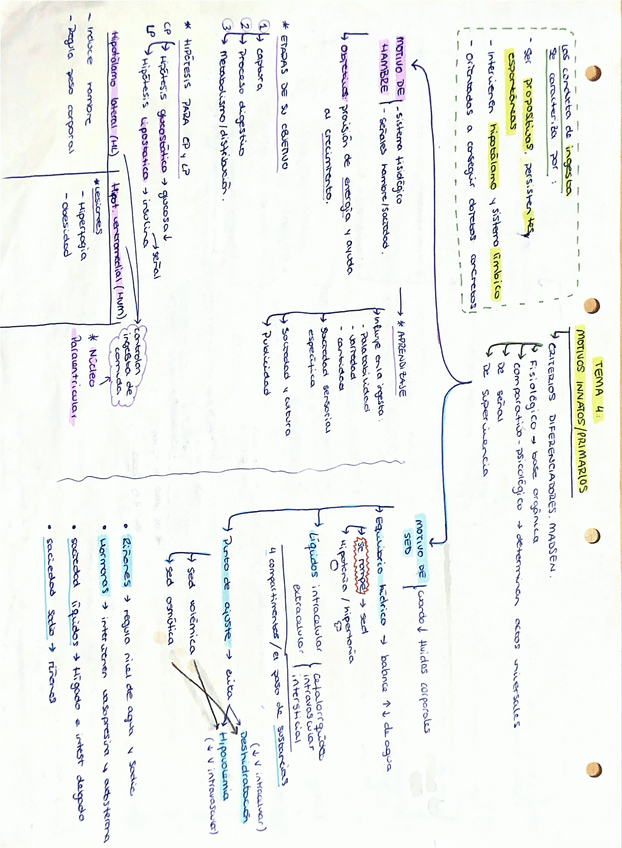 TEMA 4:
MOTIVOS INNATOS/PRIMARIOS
CRITERIOS DIFERENCIADORES. MADSEN.
Fisiológico → base orgánica
Comparativo-psicológico → determinan actos universales
De señal
De supervivencia
Las conducta de ingesta
se caracteriza por:
- Ser propositivos, persistentes,
espontáneas
- Intervienen hipotálamo y sistema límbico
- Orientadas a conseguir objetos concretos
MOTIVO DE
HAMBRE
- sistema fisiológico
- señales hambre/saciedad.
Objetivos: provisión de energía y ayuda
al crecimiento.
* ETAPAS DE SU OBJETIVO
① Captura
② Proceso digestivo
③ Metabolismo/distribución.
* HIPÓTESIS PARA CP y LP
CP → Hipótesis glucostática → glucosa ↓
LP → Hipótesis lipostática → insulina → señal
Hipotálamo lateral (HL)
- Induce hambre
- Regula peso corporal
Hipot. ventromedial (HVM)
* Lesiones
- Hiperfagia
- Obesidad
Controlan
ingesta de
comida
* Núcleo
Paraventricular
→ * APRENDIZAJE
Influye en la ingesta.
- Palatabilidad
- variedad
- cantidad
Saciedad sensorial
específica
Sociedad y cultura
Publicidad
MOTIVO DE
SED
cuando ↓ fluidos corporales
Equilibrio hídrico → balance ↑↓ de agua
Se rompe → sed
Hipotonía / hipertonía
Líquidos intracelular
extracelular
cefalorraquídeo
intravascular
intersticial
4 compartimentos / el paso de sustancias
Punto de ajuste → evita
Deshidratación
(↓ V intracelular)
Hipovolemia
(↓ V intravascular)
sed volémica
sed osmótica
• Riñones → regula nivel de agua y sodio
• Hormonas → intervienen vasopresina y aldosterona
• saciedad líquidos → hígado e intest delgado
• saciedad sodio → riñones